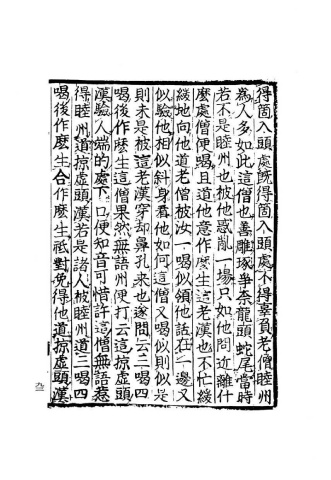 得箇入頭處旣得箇入頭處不得辜負老僧睦州
爲人多如此這僧也善雕琢爭奈龍頭蛇尾當時
若不是睦州也被他惑亂一場只如他問近離什
麽處僧便喝且道他意作麽生這老漢也不忙緩
緩地向他道老僧被汝一喝似領他話在一邊又
似驗他相似斜身看他如何這僧又喝似則似是
則未是被這老漢穿却鼻孔來也遂問云三喝四
喝後作麽生這僧果然無語州便打云這掠虛頭
漢驗人端的處下口便知音可惜許這僧無語惹
得睦州道掠虛頭漢若是諸人被睦州道三喝四
喝後作麽生合作麽生祗對免得他道掠虛頭漢